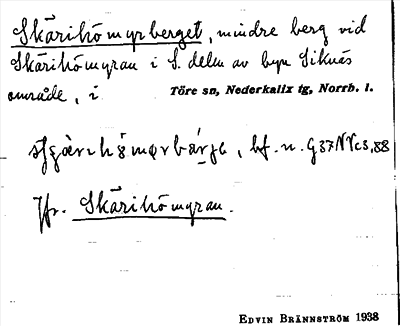 Skärihömyrberget, mindre berg vid
Skärihömyran i S. delen av byn Siknäs
område, i Töre sn, Nederkalix tg, Norrb. l.
bf. n. G37NVc3,88
Jfr. Skärihömyran.
EDVIN BRÄNNSTRÖM 1938